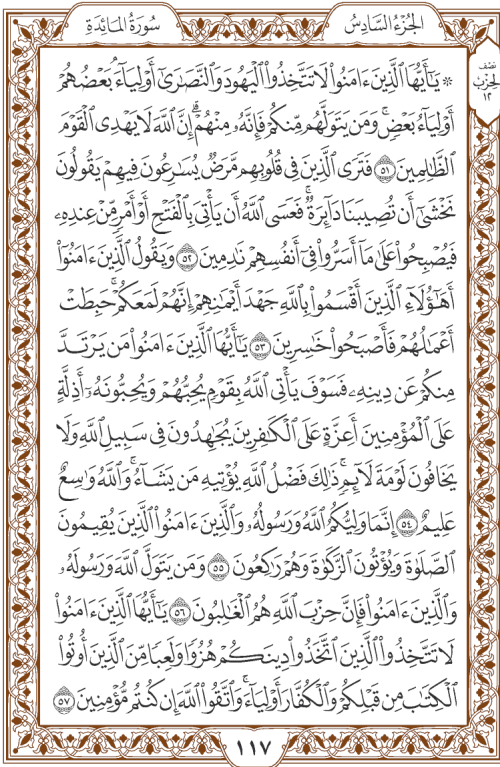 الجُزْءُ السَّادِسُ
سُورَةُ المَائِدَةِ
۞ يَٰٓأَيُّهَا ٱلَّذِينَ ءَامَنُوا۟ لَا تَتَّخِذُوا۟ ٱلْيَهُودَ وَٱلنَّصَٰرَىٰٓ أَوْلِيَآءَ ۘ بَعْضُهُمْ
نِصْف
الحِزْبِ
١٢
أَوْلِيَآءُ بَعْضٍ ۚ وَمَن يَتَوَلَّهُم مِّنكُمْ فَإِنَّهُۥ مِنْهُمْ ۗ إِنَّ ٱللَّهَ لَا يَهْدِى ٱلْقَوْمَ
ٱلظَّٰلِمِينَ ٥١ فَتَرَى ٱلَّذِينَ فِى قُلُوبِهِم مَّرَضٌ يُسَٰرِعُونَ فِيهِمْ يَقُولُونَ
نَخْشَىٰٓ أَن تُصِيبَنَا دَآئِرَةٌ ۚ فَعَسَى ٱللَّهُ أَن يَأْتِىَ بِٱلْفَتْحِ أَوْ أَمْرٍ مِّنْ عِندِهِۦ
فَيُصْبِحُوا۟ عَلَىٰ مَآ أَسَرُّوا۟ فِىٓ أَنفُسِهِمْ نَٰدِمِينَ ٥٢ وَيَقُولُ ٱلَّذِينَ ءَامَنُوٓا۟
أَهَٰٓؤُلَآءِ ٱلَّذِينَ أَقْسَمُوا۟ بِٱللَّهِ جَهْدَ أَيْمَٰنِهِمْ ۙ إِنَّهُمْ لَمَعَكُمْ ۚ حَبِطَتْ
أَعْمَٰلُهُمْ فَأَصْبَحُوا۟ خَٰسِرِينَ ٥٣ يَٰٓأَيُّهَا ٱلَّذِينَ ءَامَنُوا۟ مَن يَرْتَدَّ
مِنكُمْ عَن دِينِهِۦ فَسَوْفَ يَأْتِى ٱللَّهُ بِقَوْمٍ يُحِبُّهُمْ وَيُحِبُّونَهُۥٓ أَذِلَّةٍ
عَلَى ٱلْمُؤْمِنِينَ أَعِزَّةٍ عَلَى ٱلْكَٰفِرِينَ يُجَٰهِدُونَ فِى سَبِيلِ ٱللَّهِ وَلَا
يَخَافُونَ لَوْمَةَ لَآئِمٍ ۚ ذَٰلِكَ فَضْلُ ٱللَّهِ يُؤْتِيهِ مَن يَشَآءُ ۚ وَٱللَّهُ وَٰسِعٌ
عَلِيمٌ ٥٤ إِنَّمَا وَلِيُّكُمُ ٱللَّهُ وَرَسُولُهُۥ وَٱلَّذِينَ ءَامَنُوا۟ ٱلَّذِينَ يُقِيمُونَ
ٱلصَّلَوٰةَ وَيُؤْتُونَ ٱلزَّكَوٰةَ وَهُمْ رَٰكِعُونَ ٥٥ وَمَن يَتَوَلَّ ٱللَّهَ وَرَسُولَهُۥ
وَٱلَّذِينَ ءَامَنُوا۟ فَإِنَّ حِزْبَ ٱللَّهِ هُمُ ٱلْغَٰلِبُونَ ٥٦ يَٰٓأَيُّهَا ٱلَّذِينَ ءَامَنُوا۟
لَا تَتَّخِذُوا۟ ٱلَّذِينَ ٱتَّخَذُوا۟ دِينَكُمْ هُزُوًا وَلَعِبًا مِّنَ ٱلَّذِينَ أُوتُوا۟
ٱلْكِتَٰبَ مِن قَبْلِكُمْ وَٱلْكُفَّارَ أَوْلِيَآءَ ۚ وَٱتَّقُوا۟ ٱللَّهَ إِن كُنتُم مُّؤْمِنِينَ ٥٧
١١٧